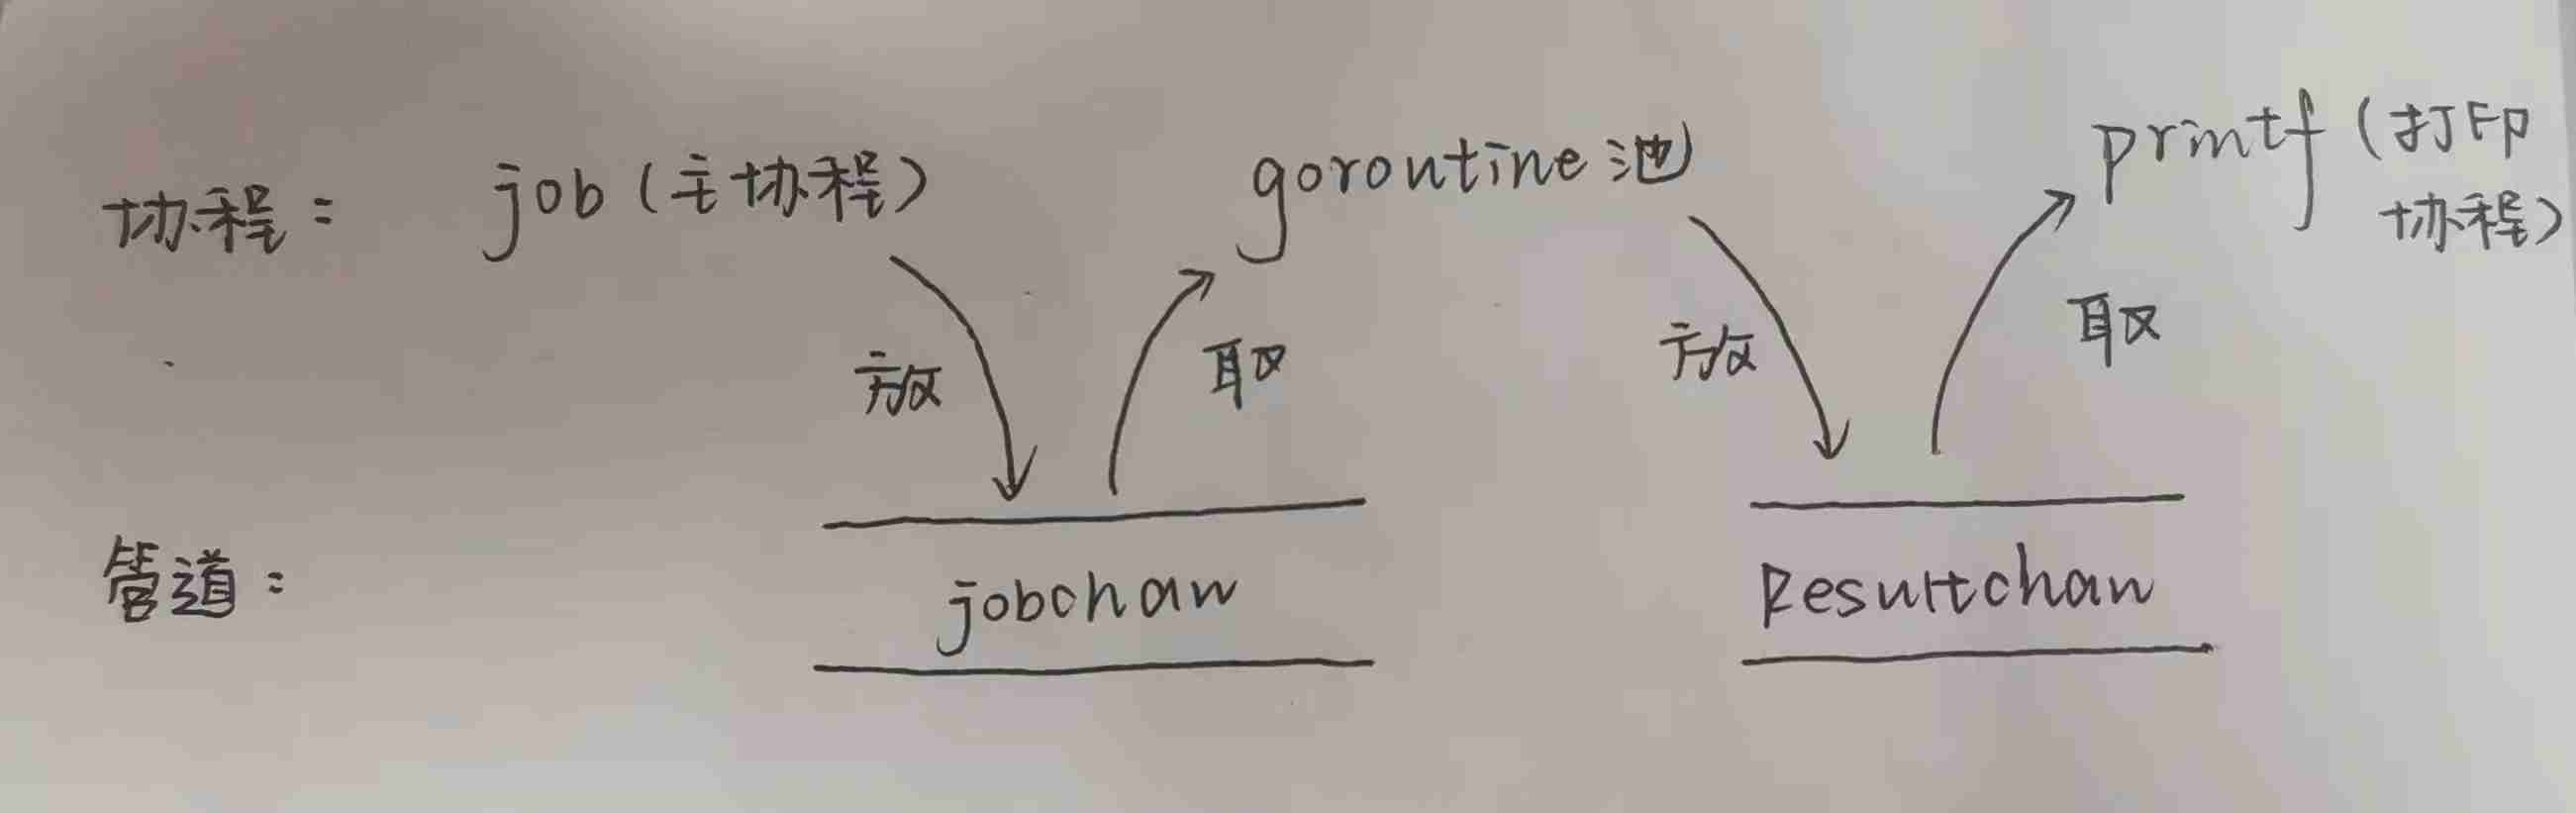 协程： job（主协程） goroutine池 printf（打印
协程）
放 取 放 取
管道： jobchan Resultchan